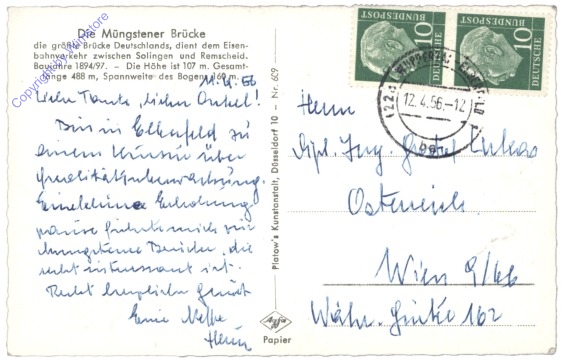 Die Müngstener Brücke
die größte Brücke Deutschlands, dient dem Eisen-
bahnverkehr zwischen Solingen und Remscheid.
Baujahre 1894/97. – Die Höhe ist 107 m. Gesamt-
länge 488 m, Spannweite des Bogens 160 m.
11.4.56
Liebe Tante, lieber Onkel!
Bin in Elberfeld zu
einem Kursus über
Qualitätsüberwachung.
Eine kleine Erholungs
pause führte mich zur
Müngstener Brücke, die
recht interessant ist.
Recht herzlichen Gruß
Euer Neffe
Platow's Kunstanstalt, Düsseldorf 10 – Nr. 609
Agfa
Papier
DEUTSCHE
BUNDESPOST
10
DEUTSCHE
BUNDESPOST
10
WUPPERTAL-ELBERFELD
12.4.56.-12
Herrn
Dipl. Ing. Lukas
Österreich
Wien 9/66
Währ. Gürtel 162
Copyright by